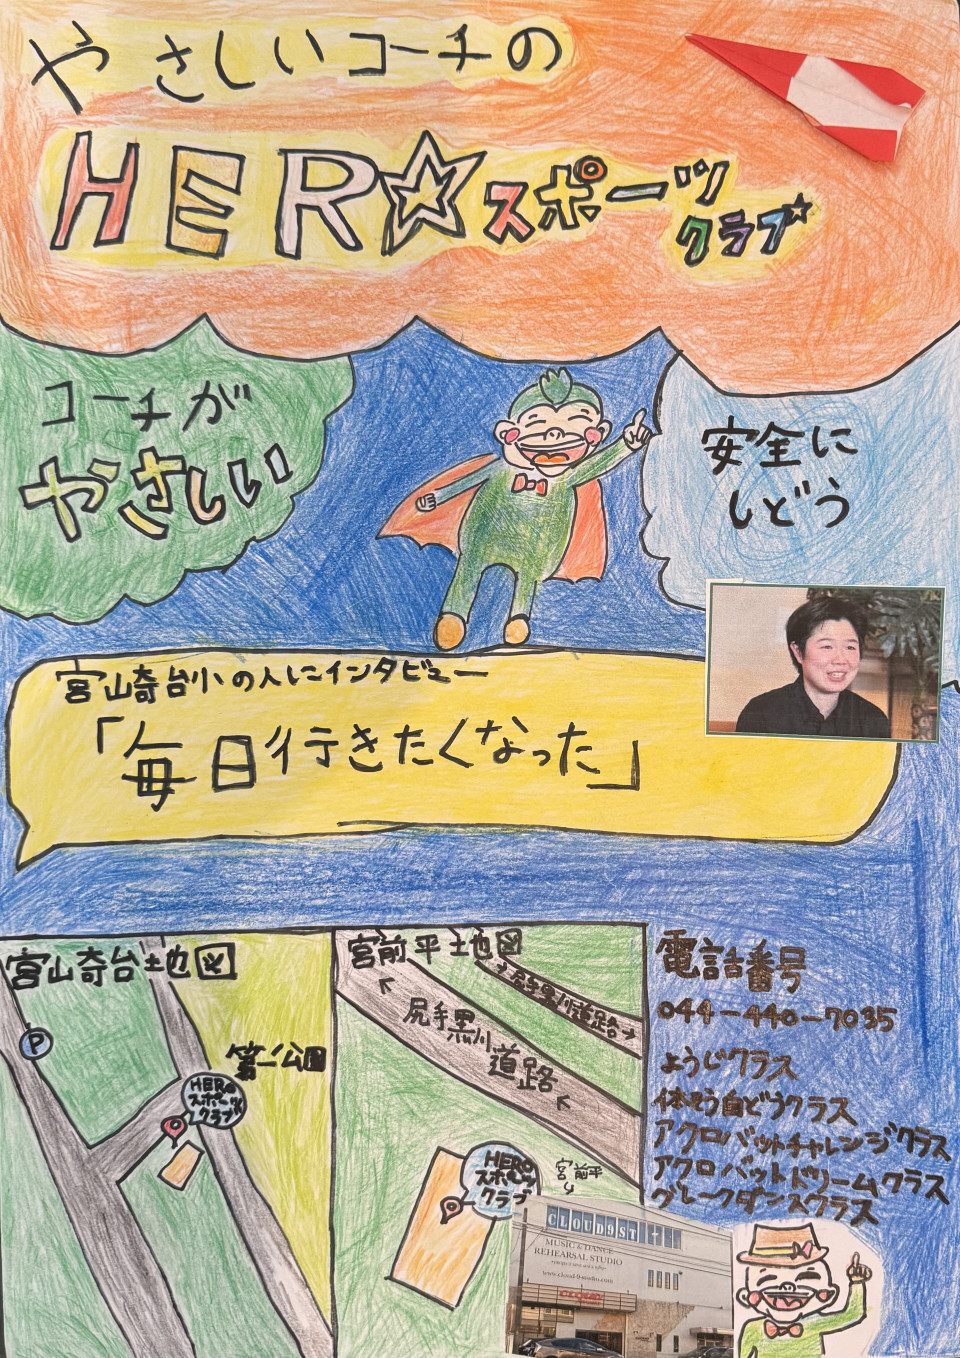 やさしいコーチの
HERO☆スポーツ
クラブ☆
コーチが
やさしい
安全に
しどう
宮山奇台小の人にインタビュー
「毎日行きたくなった」
宮山奇台地図
P
第一公園
HERO
スポーツ
クラブ
宮前平地図
尻手黒川道路
尻手黒川道路
HERO
スポーツ
クラブ
宮前平
電話番号
044-440-7035
ようじクラス
体そう自どうクラス
アクロバットチャレンジクラス
アクロバットドリームクラス
ブレークダンスクラス
CLOUD9ST
MUSIC & DANCE
REHEARSAL STUDIO